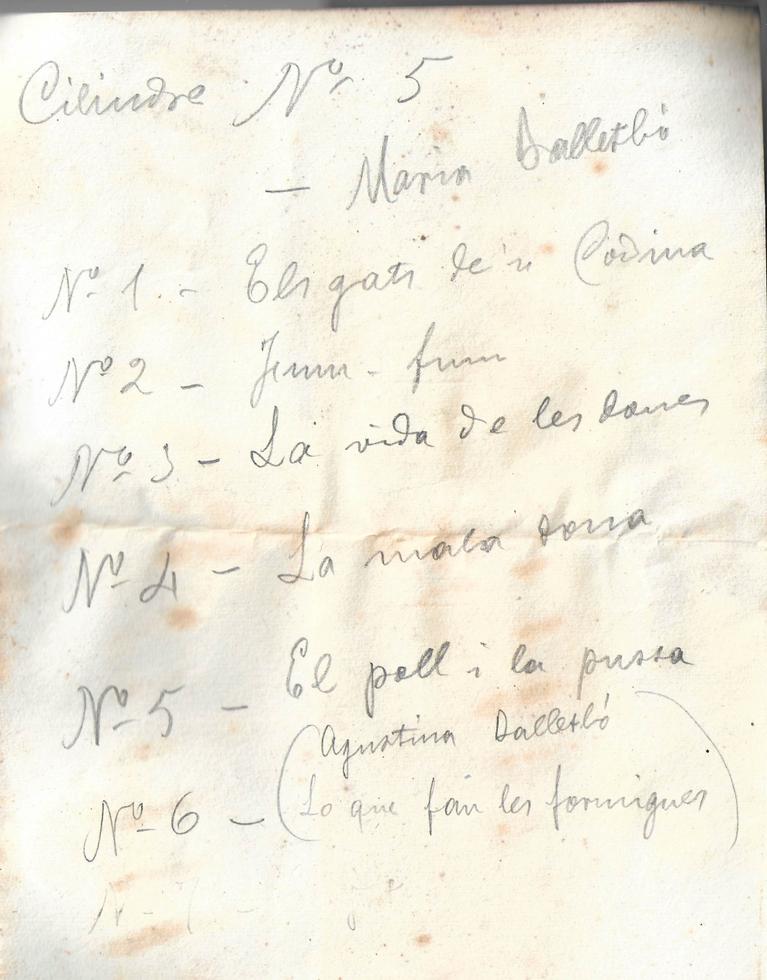 Cilindre Nº 5
— Maria Ballesbó
Nº 1 - Els gats de'n Codina
Nº 2 - Fum - fum
Nº 3 - La vida de les dones
Nº 4 - La mala dona
Nº 5 - El poll i la pussa
(Agustina Ballesbó
Nº 6 - Lo que fan les formigues)